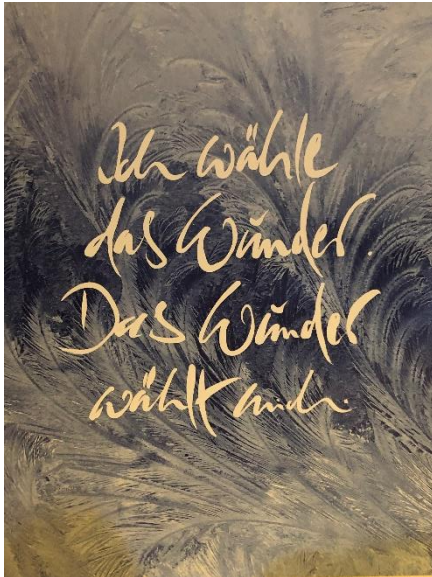 Ich wähle
das Wunder.
Das Wunder
wählt mich.